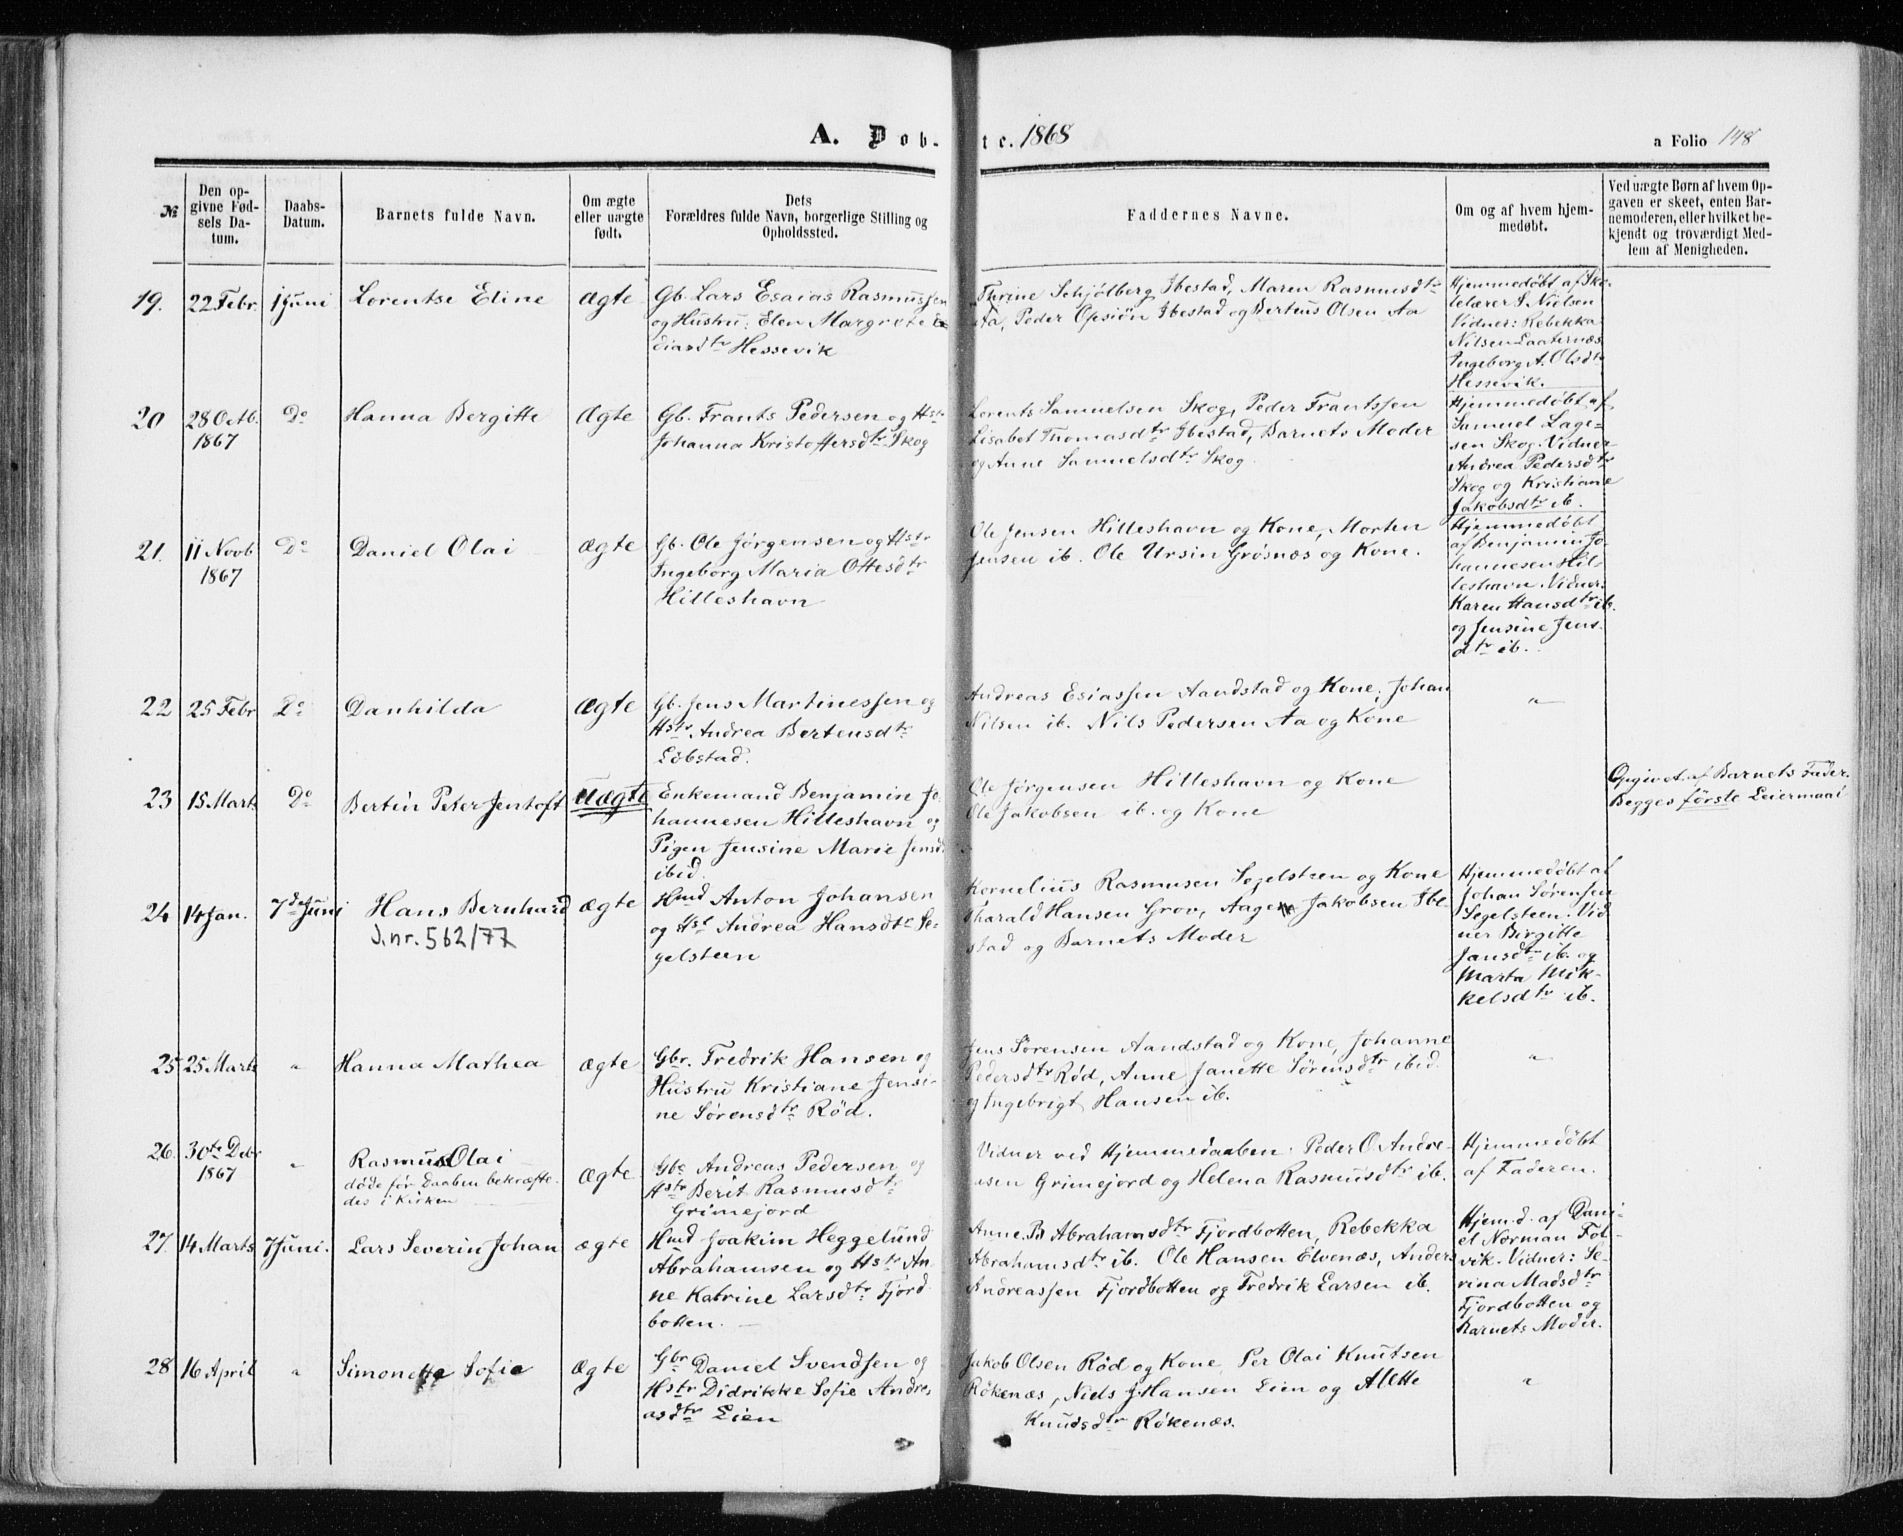 A. Dob. tc. 1868
a Folio 148
№
Den op-
givne Fød-
sels Da-
tum.
Daabs-
Datum.
Barnets fulde Navn.
Om ægte
eller uægte
født.
Dets
Forældres fulde Navn, borgerlige Stilling og
Opholdssted.
Faddernes Navne.
Om og af hvem hjem-
medøbt.
Ved uægte Børn af hvem Op-
gaven er skeet, enten Bar-
nemoderen, eller hvilket be-
kjendt og troværdigt Med-
lem af Menigheden.
19.
22 Febr.
1 Juni
Lorentse Eline
Ægte
Gb. Lars Esaias Rasmussen
og Hustru: Elen Margrete
diardtr Hessevik
Thrine Schjølberg Ibestad, Maren Rasmusdtr
Aa, Peder Opsiøn Ibestad og Berteus Olsen Aa
Hjemmedøbt af Sko-
lelærer J. Nielsen
Vidner: Rebekka
Nilsen Laaternæs
Ingeborg A. Olsdtr
Hessevik.
20
28 Octb.
1867
Do
Hanna Bergitte
Ægte
Gb. Frants Pedersen og Hstr
Johanna Kristoffersdtr Skog
Lorents Samuelsen Skog, Peder Frantssen
Lisabet Thomasdtr Ibestad, Barnets Moder
og Anne Samuelsdtr Skog.
Hjemmedøbt af
Samuel Lage-
sen Skog. Vidner
Andrea Pedersdtr
Skog og Kristiane
Jakobsdtr ib.
21.
11 Novb
1867
Do
Daniel Olai
Ægte
Gb. Ole Jørgensen og Hstr
Ingeborg Maria Ottesdtr
Hilleshavn
Ole Jensen Hilleshavn og Kone, Morten
Jensen ib. Ole Ursin Grøsnæs og Kone.
Hjemmedøbt
af Benjamin Jo-
hannesen Hil-
leshavn. Vidner:
Karen Hansdtr ib.
og Jensine Jens-
dtr ib.
22
25 Febr
Do
Danhilda
Ægte
Gb. Jens Martinessen og
Hstr Andrea Bertensdtr
Løbstad.
Andreas Esiassen Aandstad og Kone, Johan
Nilsen ib. Nils Pedersen Aa og Kone
"
23
15 Marts
Do
Bertin Peter Jentoft
Uægte
Enkemand Benjamin Jo-
hannesen Hilleshavn og
Pigen Jensine Marie Jensd.
ibid.
Ole Jørgensen Hilleshavn og Kone
Ole Jakobsen ib. og Kone
Opgivet af Barnets Fader.
Begges første Leiermaal
24
14 Jan.
7de Juni
Hans Bernhard
J.nr. 562/77
Ægte
Hmd Anton Johansen
og Hst Andrea Hansdtr Se-
gelsteen
Kornelius Rasmusen Segelsteen og Kone
Tharald Hansen Grov, Aage Jakobsen Ibe-
stad og Barnets Moder
Hjemmedøbt af
Johan Sørensen
Segelsteen. Vid
ner Birgitte
Jansdtr ib. og
Marta Mik-
kelsdtr ib.
25
25 Marts
"
Hanna Mathea
Ægte
Gbr. Fredrik Hansen og
Hustru Kristiane Jensi-
ne Sørensdtr Rød.
Jens Sørensen Aandstad og Kone, Johanne
Pedersdtr Rød, Anne Janette Sørensdtr ibid.
og Ingebrigt Hansen ib.
"
26.
30te Debr
1867
"
Rasmus Olai
døde før Daaben bekræfte-
des i Kirken
Ægte
Gbr Andreas Pedersen og
Hstr Berit Rasmusdtr
Grimejord
Vidner ved Hjemmedaaben: Peder O. Andre-
asen Grimejord og Helena Rasmusdtr ib.
Hjemmedøbt
af Faderen.
27.
14 Marts
7 Juni.
Lars Severin Johan
Ægte
Hmd Joakim Heggelund
Abrahamsen og Hstr An-
ne Katrine Larsdtr Fjord
botten.
Anne B Abrahamsdtr Fjordbotten, Rebekka
Abrahamsdtr ib. Ole Hansen Elvenæs, Anders
Andreassen Fjordbotten og Fredrik Larsen ib.
Hjemd. af Dani-
el Norman Fol-
vik. Vidner: Se-
rina Madsdtr
Fjordbotten og
Barnets Moder.
28
16 April
"
Simonette Sofie
Ægte
Gbr Daniel Svendsen og
Hstr Didrikke Sofie Andre
asdtr Lien
Jakob Olsen Rød og Kone, Per Olai Knutsen
Røkenæs, Niels J Hansen Lien og Alette
Knudsdtr Røkenæs.
"